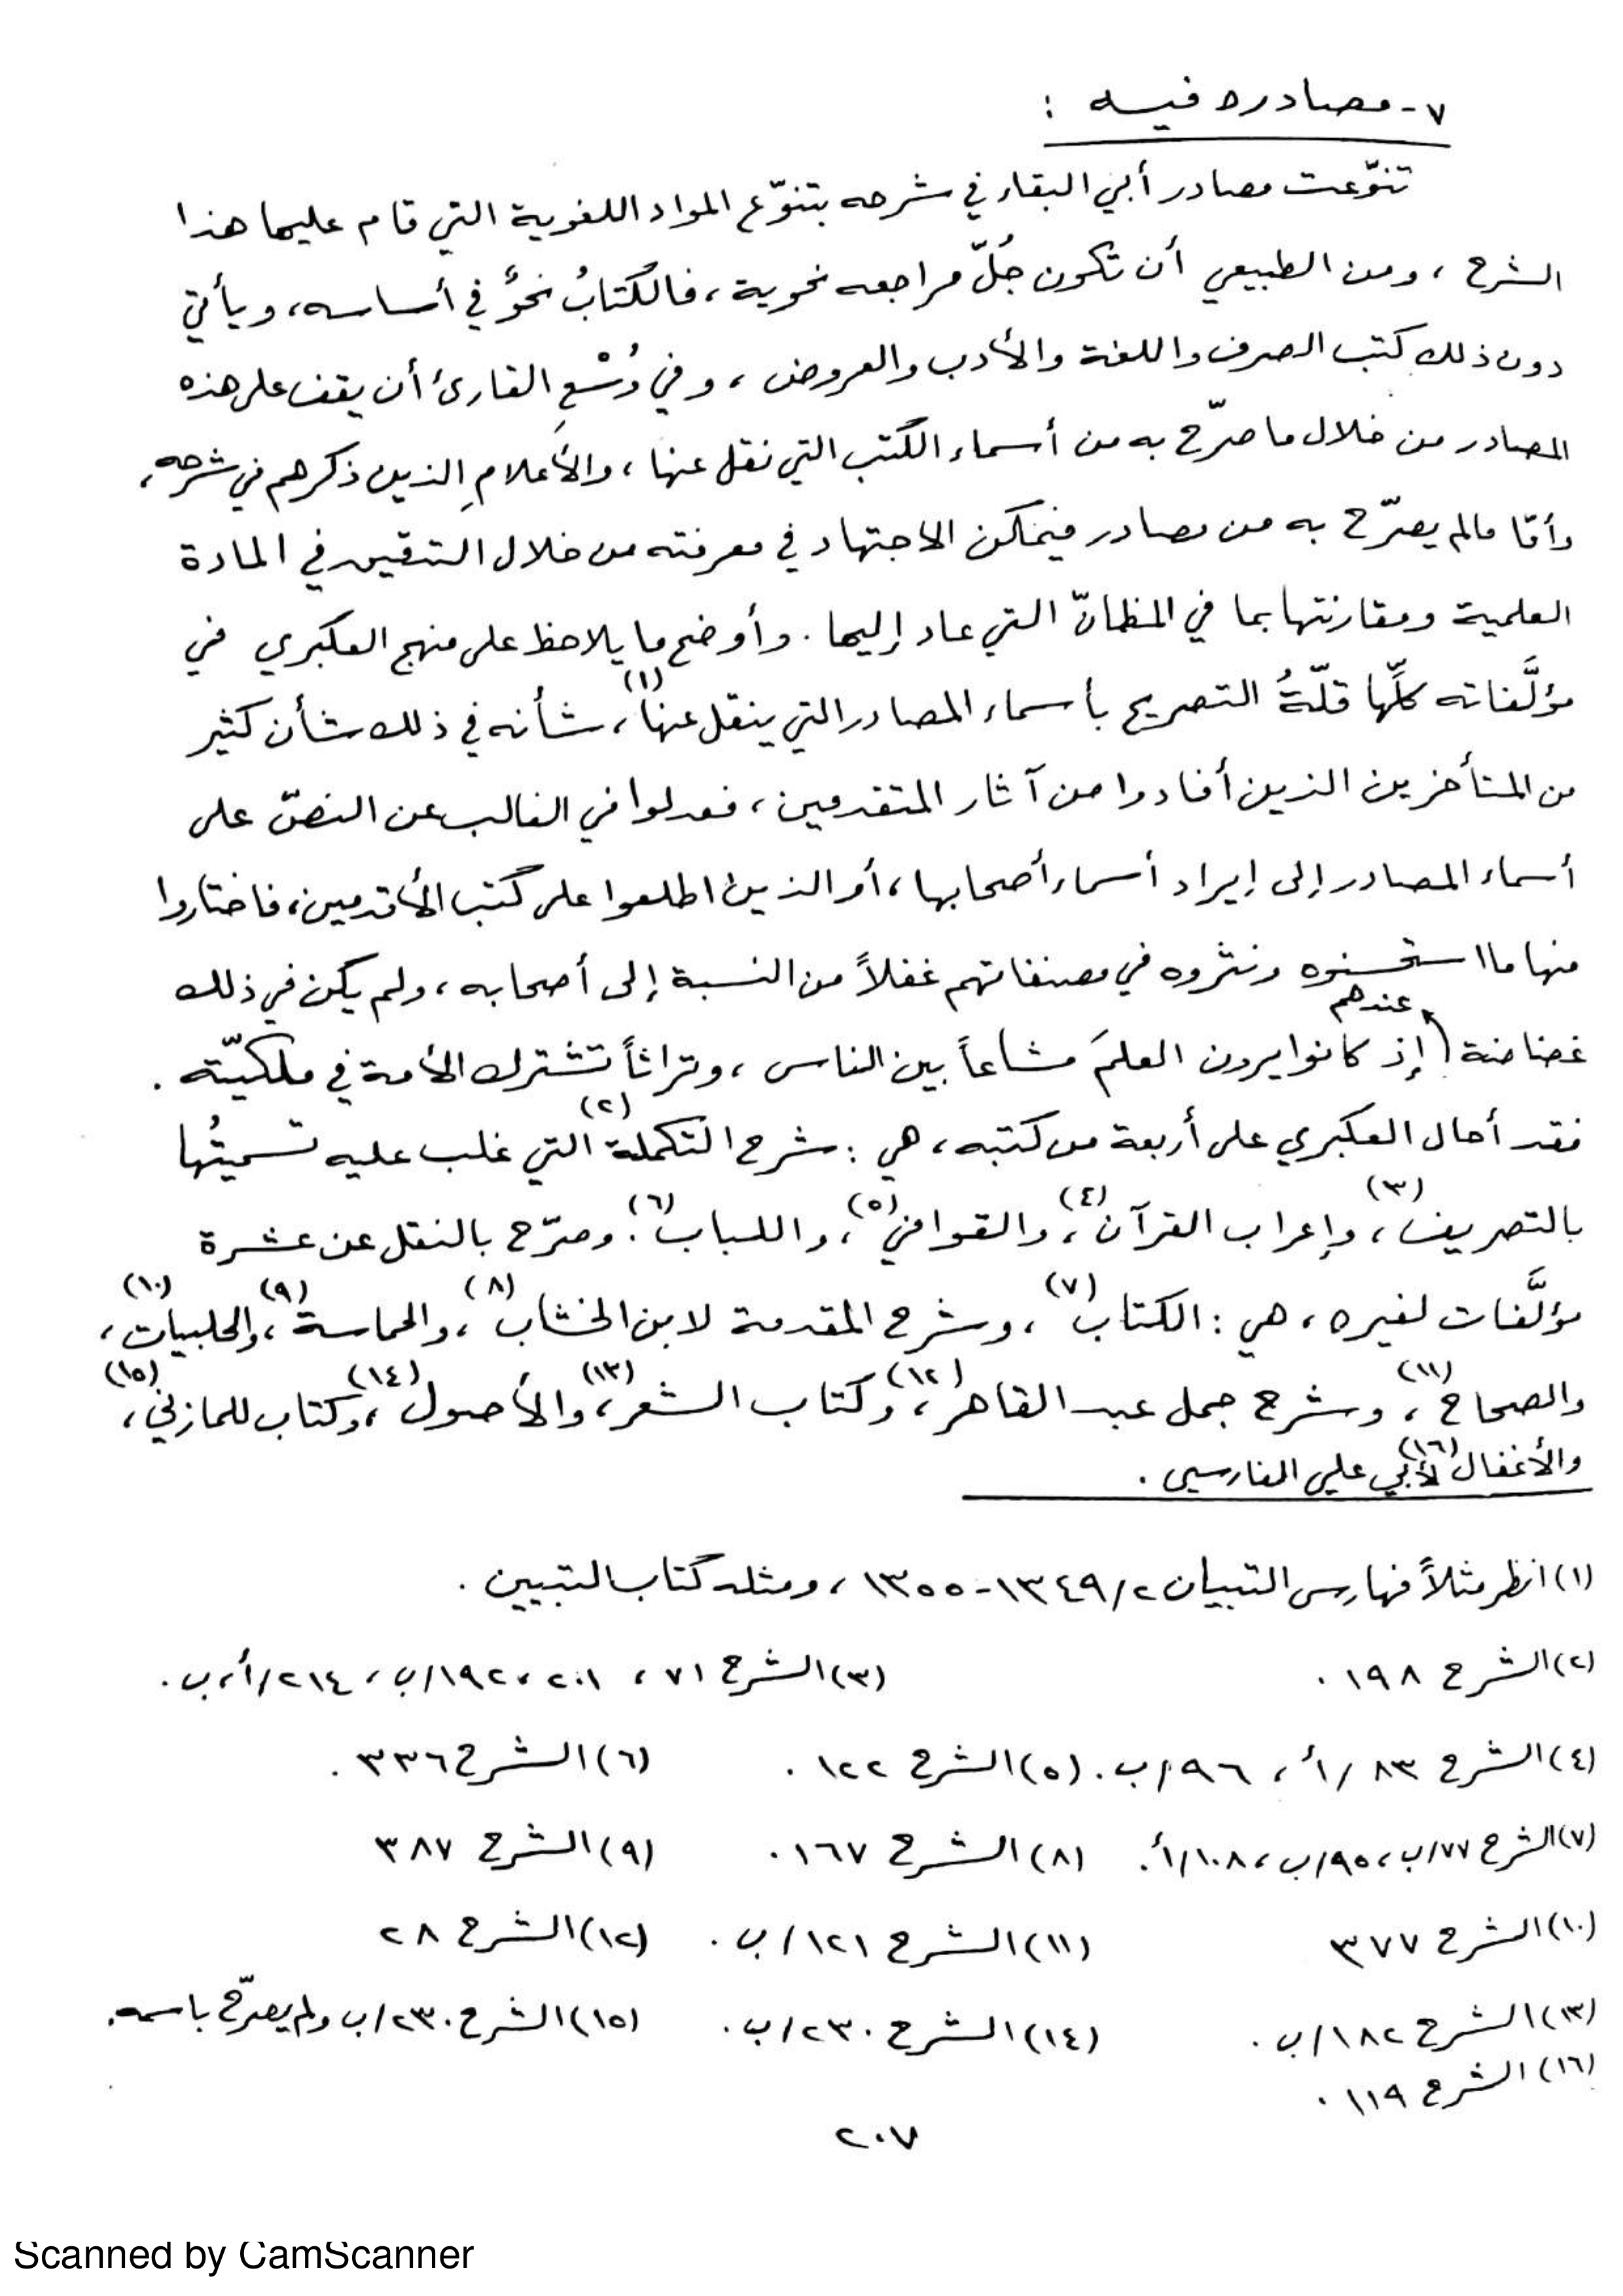 ٧- مصادره فيه :
تنوّعت مصادر أبي البقاء في شرحه بتنوّع المواد اللغوية التي قام عليها هذا
الشرح ، ومن الطبيعي أن تكون جُلّ مراجعه نحوية ، فالكتابُ نحوٌ في أساسه ، ويأتي
دون ذلك كتب الصرف واللغة والأدب والعروض ، وفي وُسْعِ القارئ أن يقف على هذه
المصادر من خلال ما صرّح به من أسماء الكتب التي نقل عنها ، والأعلامِ الذين ذكرهم في شرحه ،
وأمّا مالم يصرّح به من مصادر فيمكن الاجتهاد في معرفته من خلال التدقيق في المادة
العلمية ومقارنتها بما في المظانّ التي عاد إليها . وأوضح ما يلاحظ على منهج العكبري في
مؤلَّفاته كلِّها قلّةُ التصريح بأسماء المصادر التي ينقل عنها (١) ، شأنه في ذلك شأن كثير
من المتأخرين الذين أفادوا من آثار المتقدمين ، فعدلوا في الغالب عن النصّ على
أسماء المصادر إلى إيراد أسماء أصحابها ، أو الذين اطلعوا على كتب الأقدمين ، فاختاروا
منها ما استحسنوه ونثروه في مصنفاتهم غفلاً من النسبة إلى أصحابه ، ولم يكن في ذلك
غضاضة عندهم إذ كانوا يرون العلمَ مشاعاً بين الناس ، وتراثاً تشترك الأمة في ملكيّته .
فقد أحال العكبري على أربعة من كتبه ، هي : شرح التكملة (٢) التي غلب عليه تسميتُها
بالتصريف (٣) ، وإعراب القرآن (٤) ، والقوافي (٥) ، واللباب (٦) . وصرّح بالنقل عن عشرة
مؤلَّفات لغيره ، هي : الكتاب (٧) ، وشرح المقدمة لابن الخشاب (٨) ، والحماسة (٩) ، والحلبيات (١٠) ،
والصحاح (١١) ، وشرح جمل عبد القاهر (١٢) ، وكتاب الشعر (١٣) ، والأصول (١٤) ، وكتاب للمازني (١٥) ،
والأغفال (١٦) لأبي علي الفارسي .
(١) انظر مثلاً فهارس التبيان ٢/ ١٣٤٩ - ١٣٥٥ ، ومثله كتاب التبيين .
(٢) الشرح ١٩٨ .
(٣) الشرح ٧١ ، ٢٠١ ، ١٩٢/ب ، ٢١٤/أ، ب .
(٤) الشرح ٨٣ /أ ، ٩٦/ب .
(٥) الشرح ١٢٢ .
(٦) الشرح ٣٣٦ .
(٧) الشرح ٧٧/ب ، ٩٥/ب ، ١٠٨/أ .
(٨) الشرح ١٦٧ .
(٩) الشرح ٣٨٧
(١٠) الشرح ٣٧٧
(١١) الشرح ١٢١ /ب .
(١٢) الشرح ٢٨
(١٣) الشرح ١٨٢/ب .
(١٤) الشرح ٢٣٠/ب .
(١٥) الشرح ٢٣٠/ب ولم يصرّح باسمه .
(١٦) الشرح ١١٩ .
٢٠٧
Scanned by CamScanner